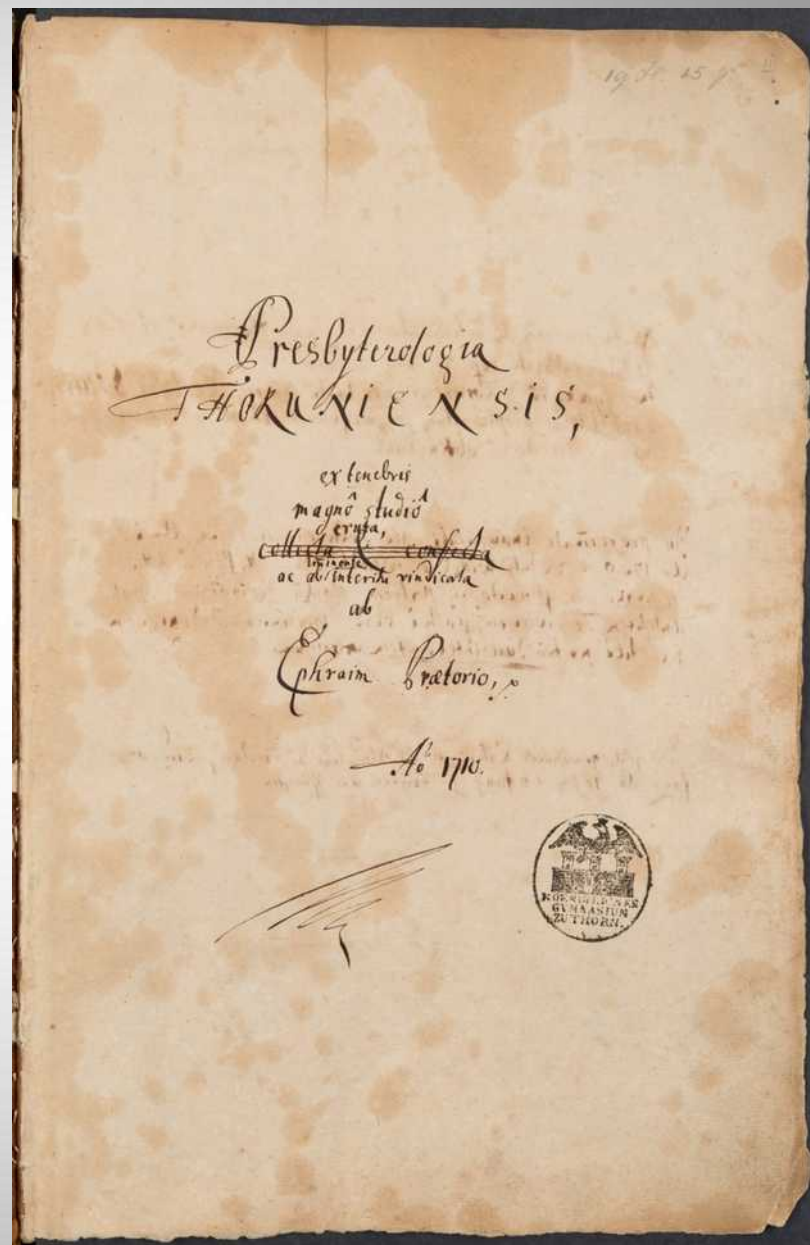 Presbyterologia
THORUNIENSIS,
ex tenebris
magnô studiô
eruta,
collecta & confecta
imminente
ac ab interitu vindicata
ab
Ephraim Prætorio,
Aõ 1710.
KOENIGLICHES
GYMNASIUM
ZU THORN.